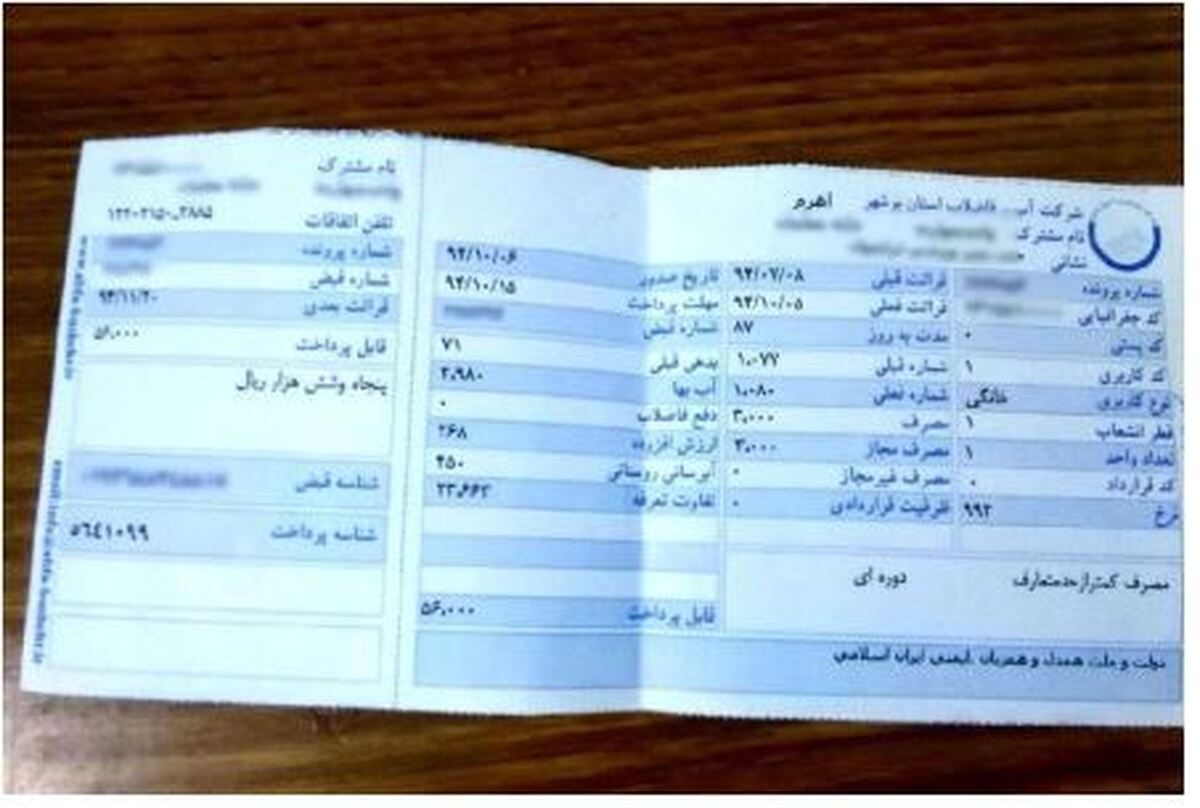 شرکت آب و فاضلاب استان بوشهر اهرم
نام مشترک
نشانی
شماره پرونده
کد جغرافیایی
کد پستی ۰
کد کاربری ۱
نوع کاربری خانگی
قطر انشعاب ۱
تعداد واحد ۱
کد قرارداد ۰
نرخ ۹۹۲
قرائت قبلی ۹۴/۰۷/۰۸
قرائت فعلی ۹۴/۱۰/۰۵
مدت به روز ۸۷
شماره قبلی ۱،۰۷۷
شماره فعلی ۱،۰۸۰
مصرف ۳،۰۰۰
مصرف مجاز ۳،۰۰۰
مصرف غیرمجاز ۰
ظرفیت قراردادی ۰
تاریخ صدور ۹۴/۱۰/۰۶
مهلت پرداخت ۹۴/۱۰/۱۵
شماره قبض
بدهی قبلی ۷۱
آب بها ۲،۹۸۰
دفع فاضلاب ۰
ارزش افزوده ۲۶۸
آبرسانی روستائی ۴۵۰
تفاوت تعرفه
قابل پرداخت ۵۶،۰۰۰
مصرف کمتر از حد متعارف دوره ای
دولت و ملت همدل و همزبان ایمنی ایران اسلامی
نام مشترک
تلفن اتفاقات
شماره پرونده
شماره قبض
قرائت بعدی ۹۴/۱۱/۲۰
قابل پرداخت ۵۶،۰۰۰
پنجاه وشش هزار ریال
شناسه قبض
شناسه پرداخت ۵۶۴۱۰۹۹